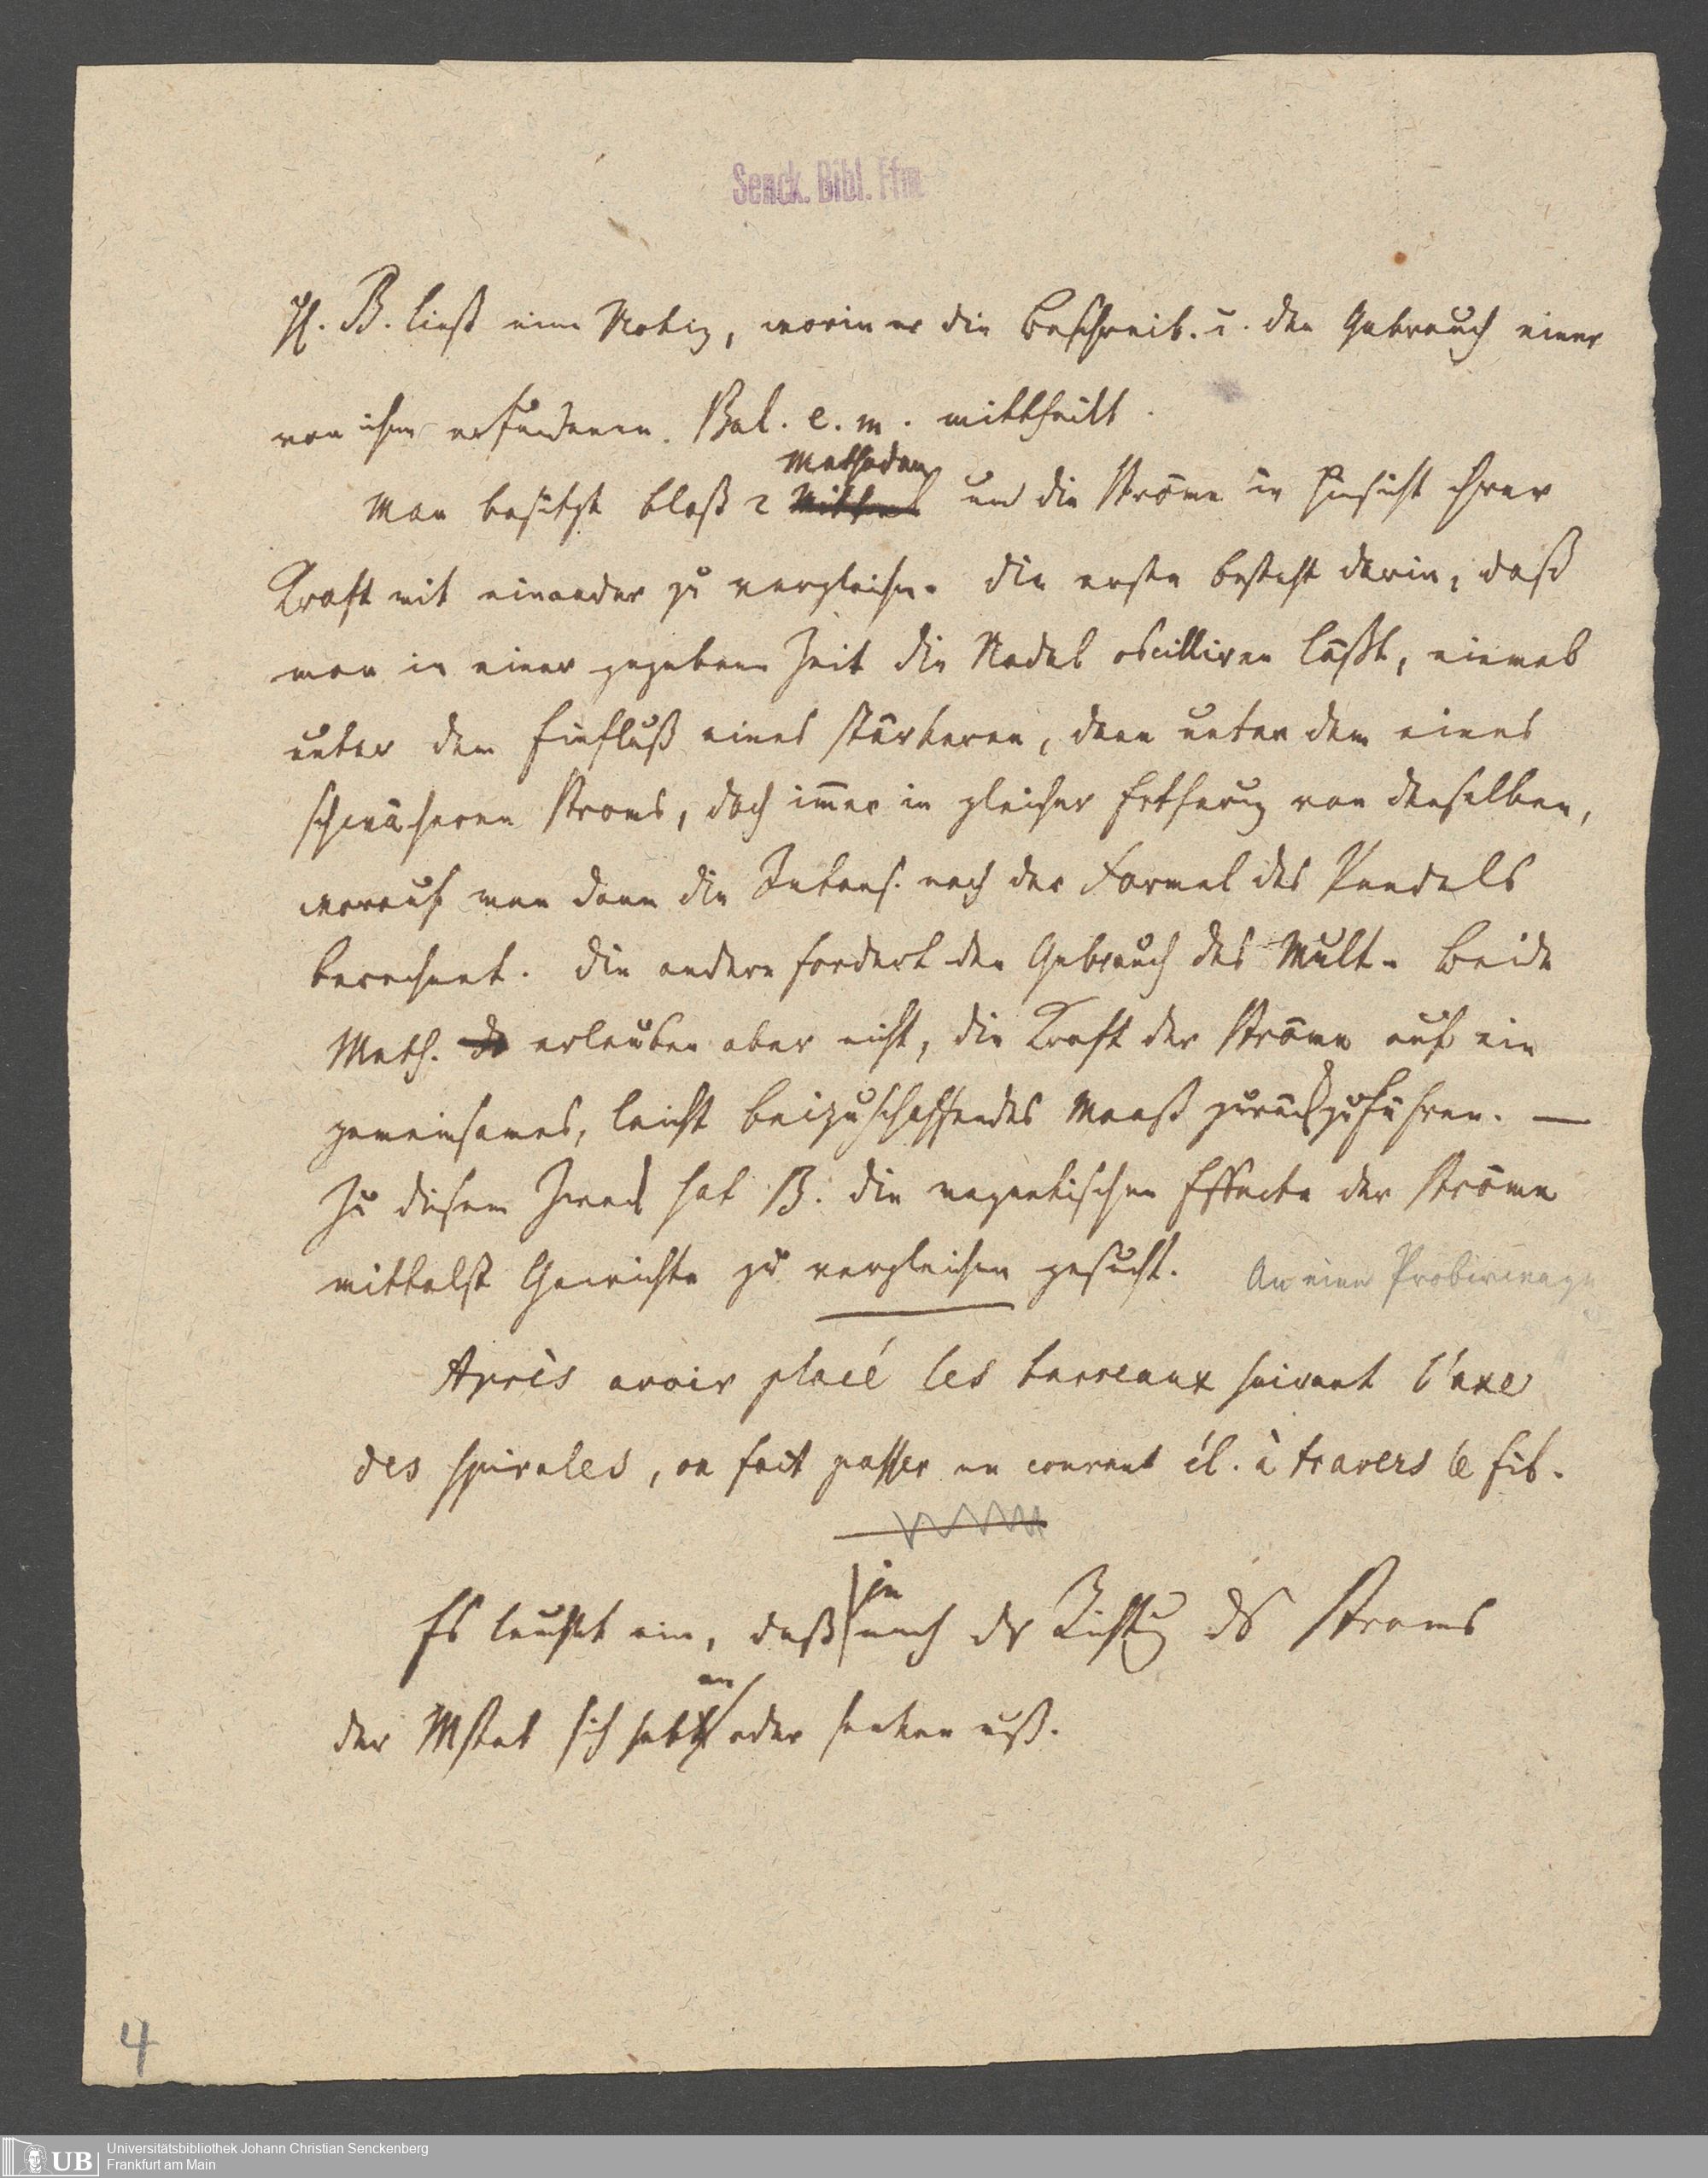 Senck. Bibl. Ffm.
H. B. ließt eine Notiz, worin er die Beschreib. u. den Gebrauch einer
von ihm erfundenen Bal. e. m. mittheilt.
Methoden
Man besitzt bloß 2 Mittel um die Ströme in Hinsicht ihrer
Kraft mit einander zu vergleichen. Die erste besteht darin, daß
man in einer gegebenen Zeit die Nadel oscilliren läßt, einmal
unter dem Einfluß eines stärkeren, dann unter dem eines
schwächeren Stroms, doch immer in gleicher Entfernung von denselben,
worauf man dann die Intens. nach der Formel des Pendels
berechnet. Die andere fordert den Gebrauch des Mult. Beide
Meth. erlauben aber nicht, die Kraft der Ströme auf ein
gemeinsames, leicht beizuschaffendes Maaß zurückzuführen. —
Zu diesem Zweck hat B. die magnetischen Effecte der Ströme
mittelst Gewichte zu vergleichen gesucht. An einer Probirwage
Après avoir placé les barreaux suivant l'axe
des spirales, on fait passer un courant él. à travers le fil.
je
Es leuchtet ein, daß nach der Richtung des Stroms
en
der Mstab sich heb oder senken muß.
4
UB
Universitätsbibliothek Johann Christian Senckenberg
Frankfurt am Main